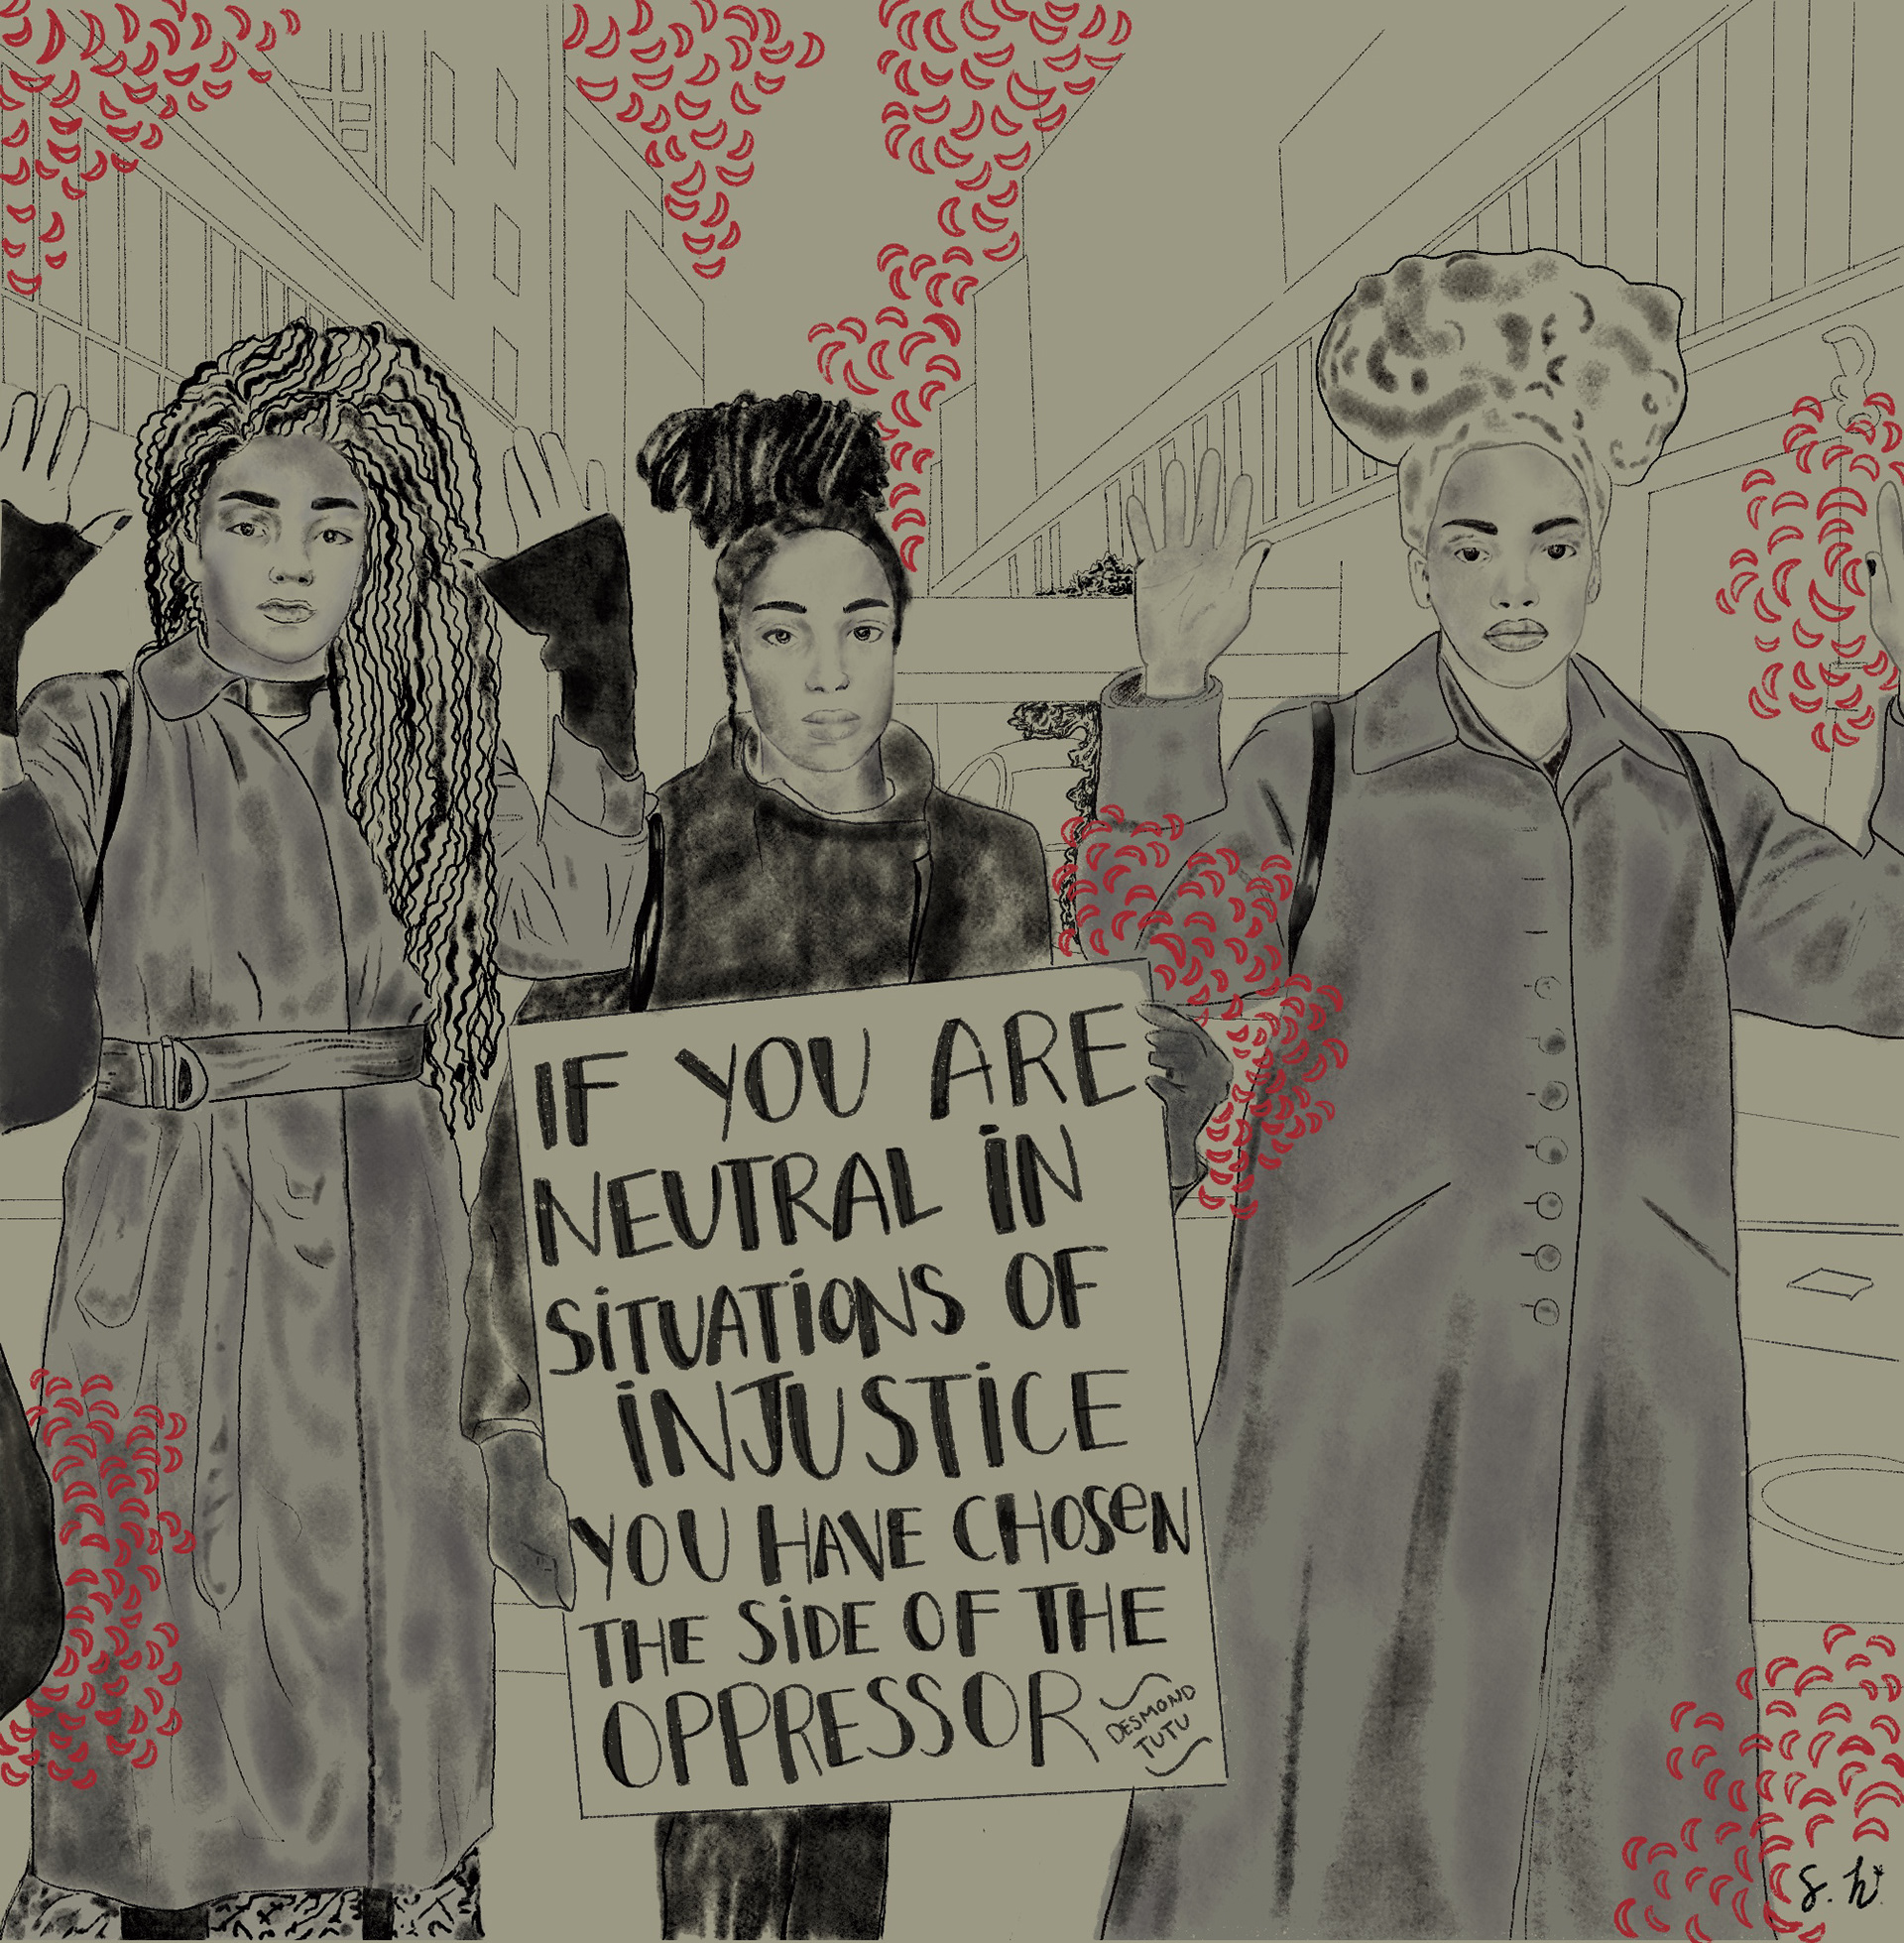 IF YOU ARE
NEUTRAL IN
SITUATIONS OF
INJUSTICE
YOU HAVE CHOSeN
THE SIDE OF THE
OPPRESSOR
DESMOND
TUTU
S. h.